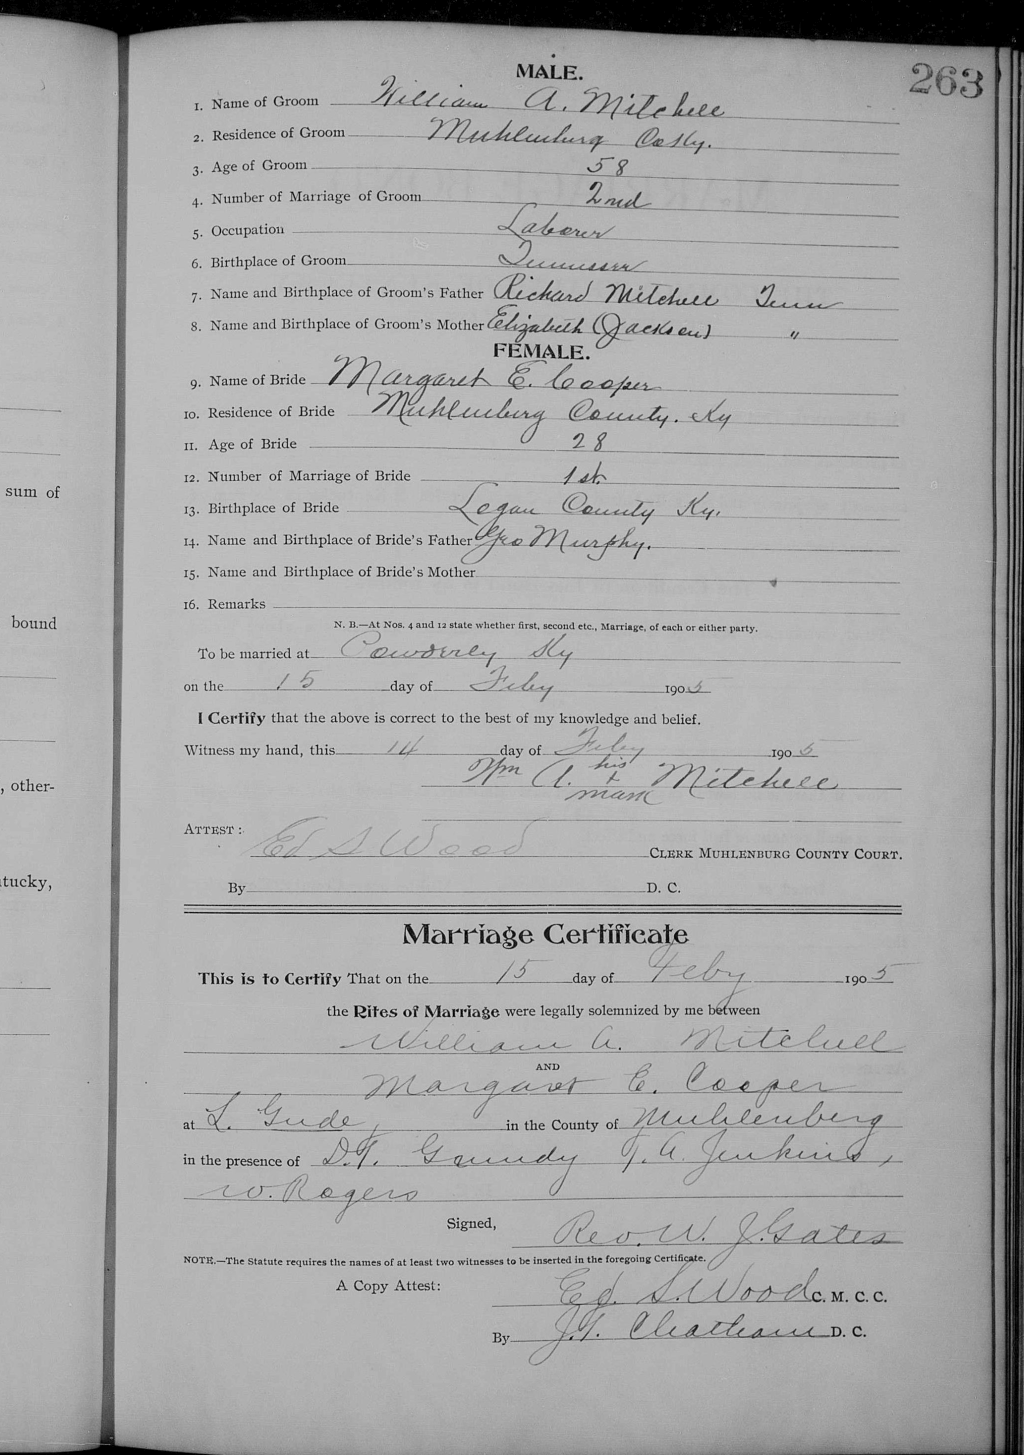 263
MALE.
1. Name of Groom William A. Mitchell
2. Residence of Groom Muhlenburg Co Ky.
3. Age of Groom 58
4. Number of Marriage of Groom 2nd
5. Occupation Laborer
6. Birthplace of Groom Tennessee
7. Name and Birthplace of Groom's Father Richard Mitchell Tenn
8. Name and Birthplace of Groom's Mother Elizabeth (Jackson) "
FEMALE.
9. Name of Bride Margaret E. Cooper
10. Residence of Bride Muhlenberg County. Ky
11. Age of Bride 28
12. Number of Marriage of Bride 1st.
13. Birthplace of Bride Logan County Ky.
14. Name and Birthplace of Bride's Father Geo Murphy.
15. Name and Birthplace of Bride's Mother
16. Remarks
N. B.—At Nos. 4 and 12 state whether first, second etc., Marriage, of each or either party.
To be married at Ky
on the 15 day of Feby 1905
I Certify that the above is correct to the best of my knowledge and belief.
Witness my hand, this 14 day of Feby 1905
his
Wm A. + Mitchell
mark
ATTEST: Ed S Wood CLERK MUHLENBURG COUNTY COURT.
By D. C.
Marriage Certificate
This is to Certify That on the 15 day of Feby 1905
the Rites of Marriage were legally solemnized by me between
William A. Mitchell
AND
Margaret E. Cooper
at L. Gude, in the County of Muhlenberg
in the presence of D.T. Grundy T. A. Jenkins,
W. Rogers
Signed, Rev. W. J. Gates
NOTE.—The Statute requires the names of at least two witnesses to be inserted in the foregoing Certificate.
A Copy Attest: Ed. S. Wood C. M. C. C.
By J.T. Chatham D. C.
sum of
bound
, other-
tucky,